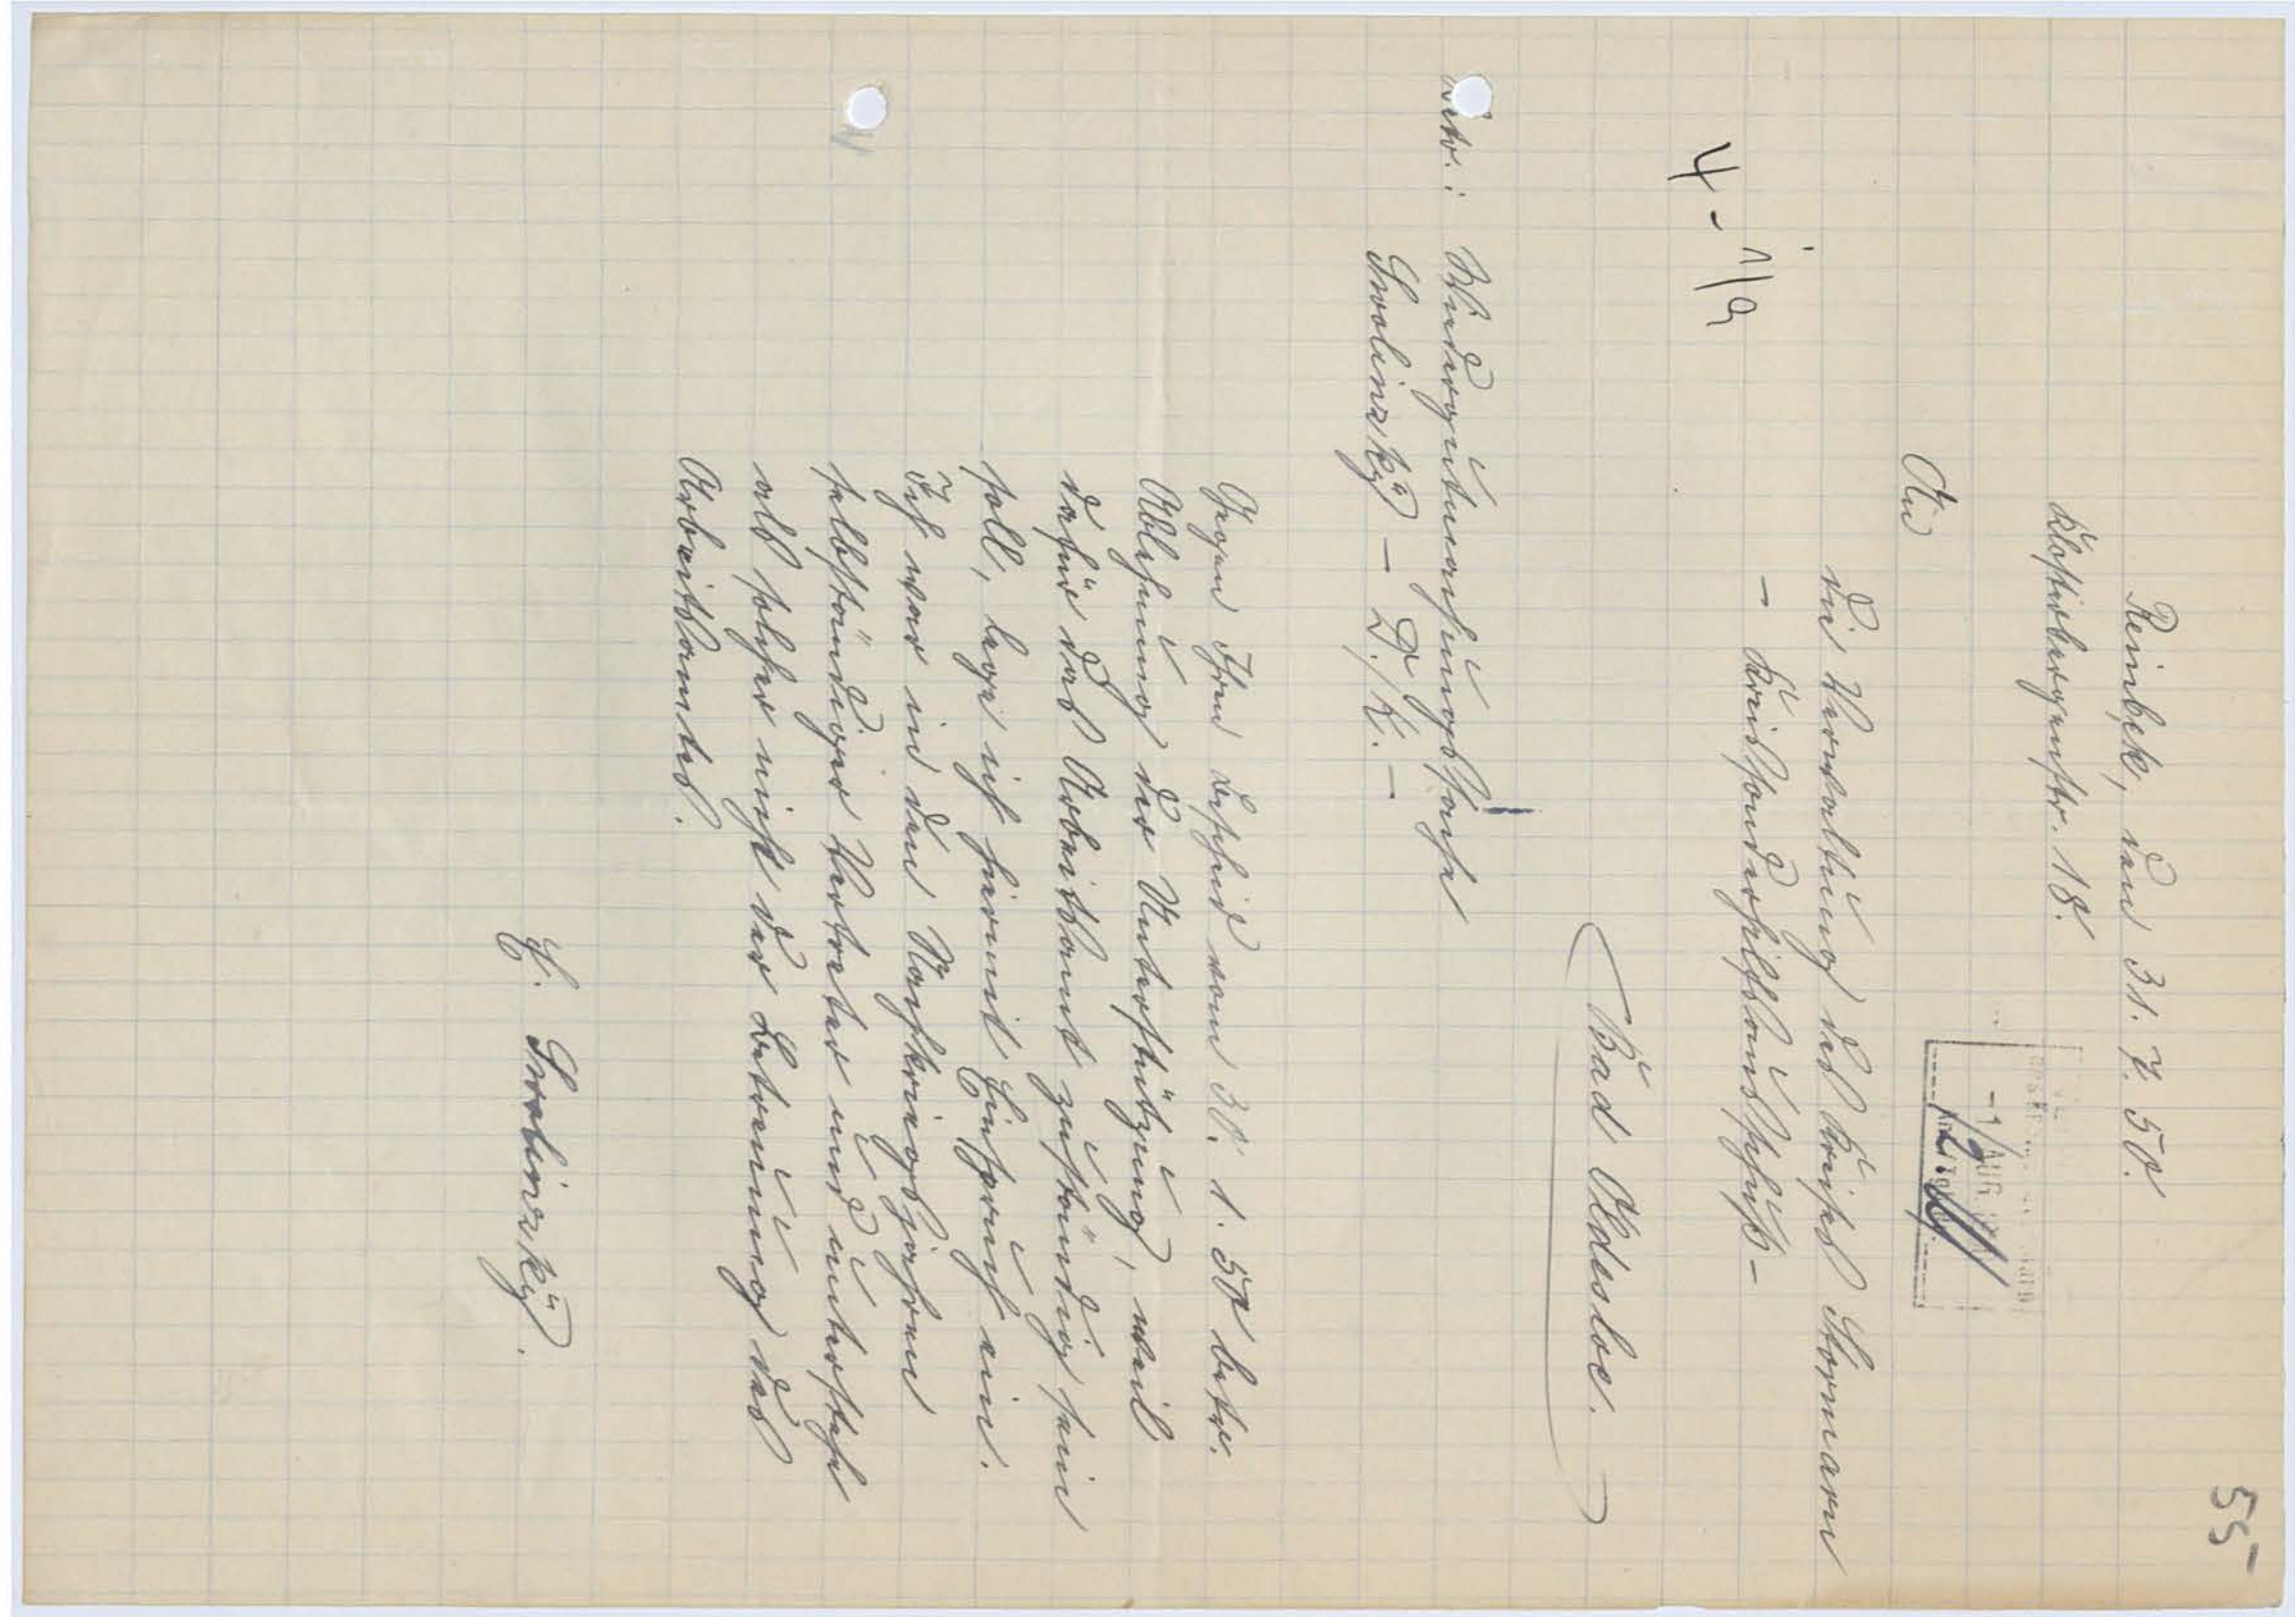 55
Reinbek, den 31. 7. 50.
Klosterbergenstr. 18.
An
die Verwaltung des Kreises Stormarn
- Kreissonderhilfsausschuß -
4 - 1/9
Bad Oldesloe.
Betr.: Wiedergutmachungssache
Smolinzky - D./K. -
Gegen Ihren Bescheid vom 30. 1. 50 betr.
Ablehnung der Unterstützung, weil
dafür das Arbeitsamt zuständig sein
soll, lege ich hiermit Einspruch ein.
Ich war in den Nachkriegsjahren
selbständiger Vertreter und unterstehe
als solcher nicht der Betreuung des
Arbeitsamtes.
H. Smolinzky.